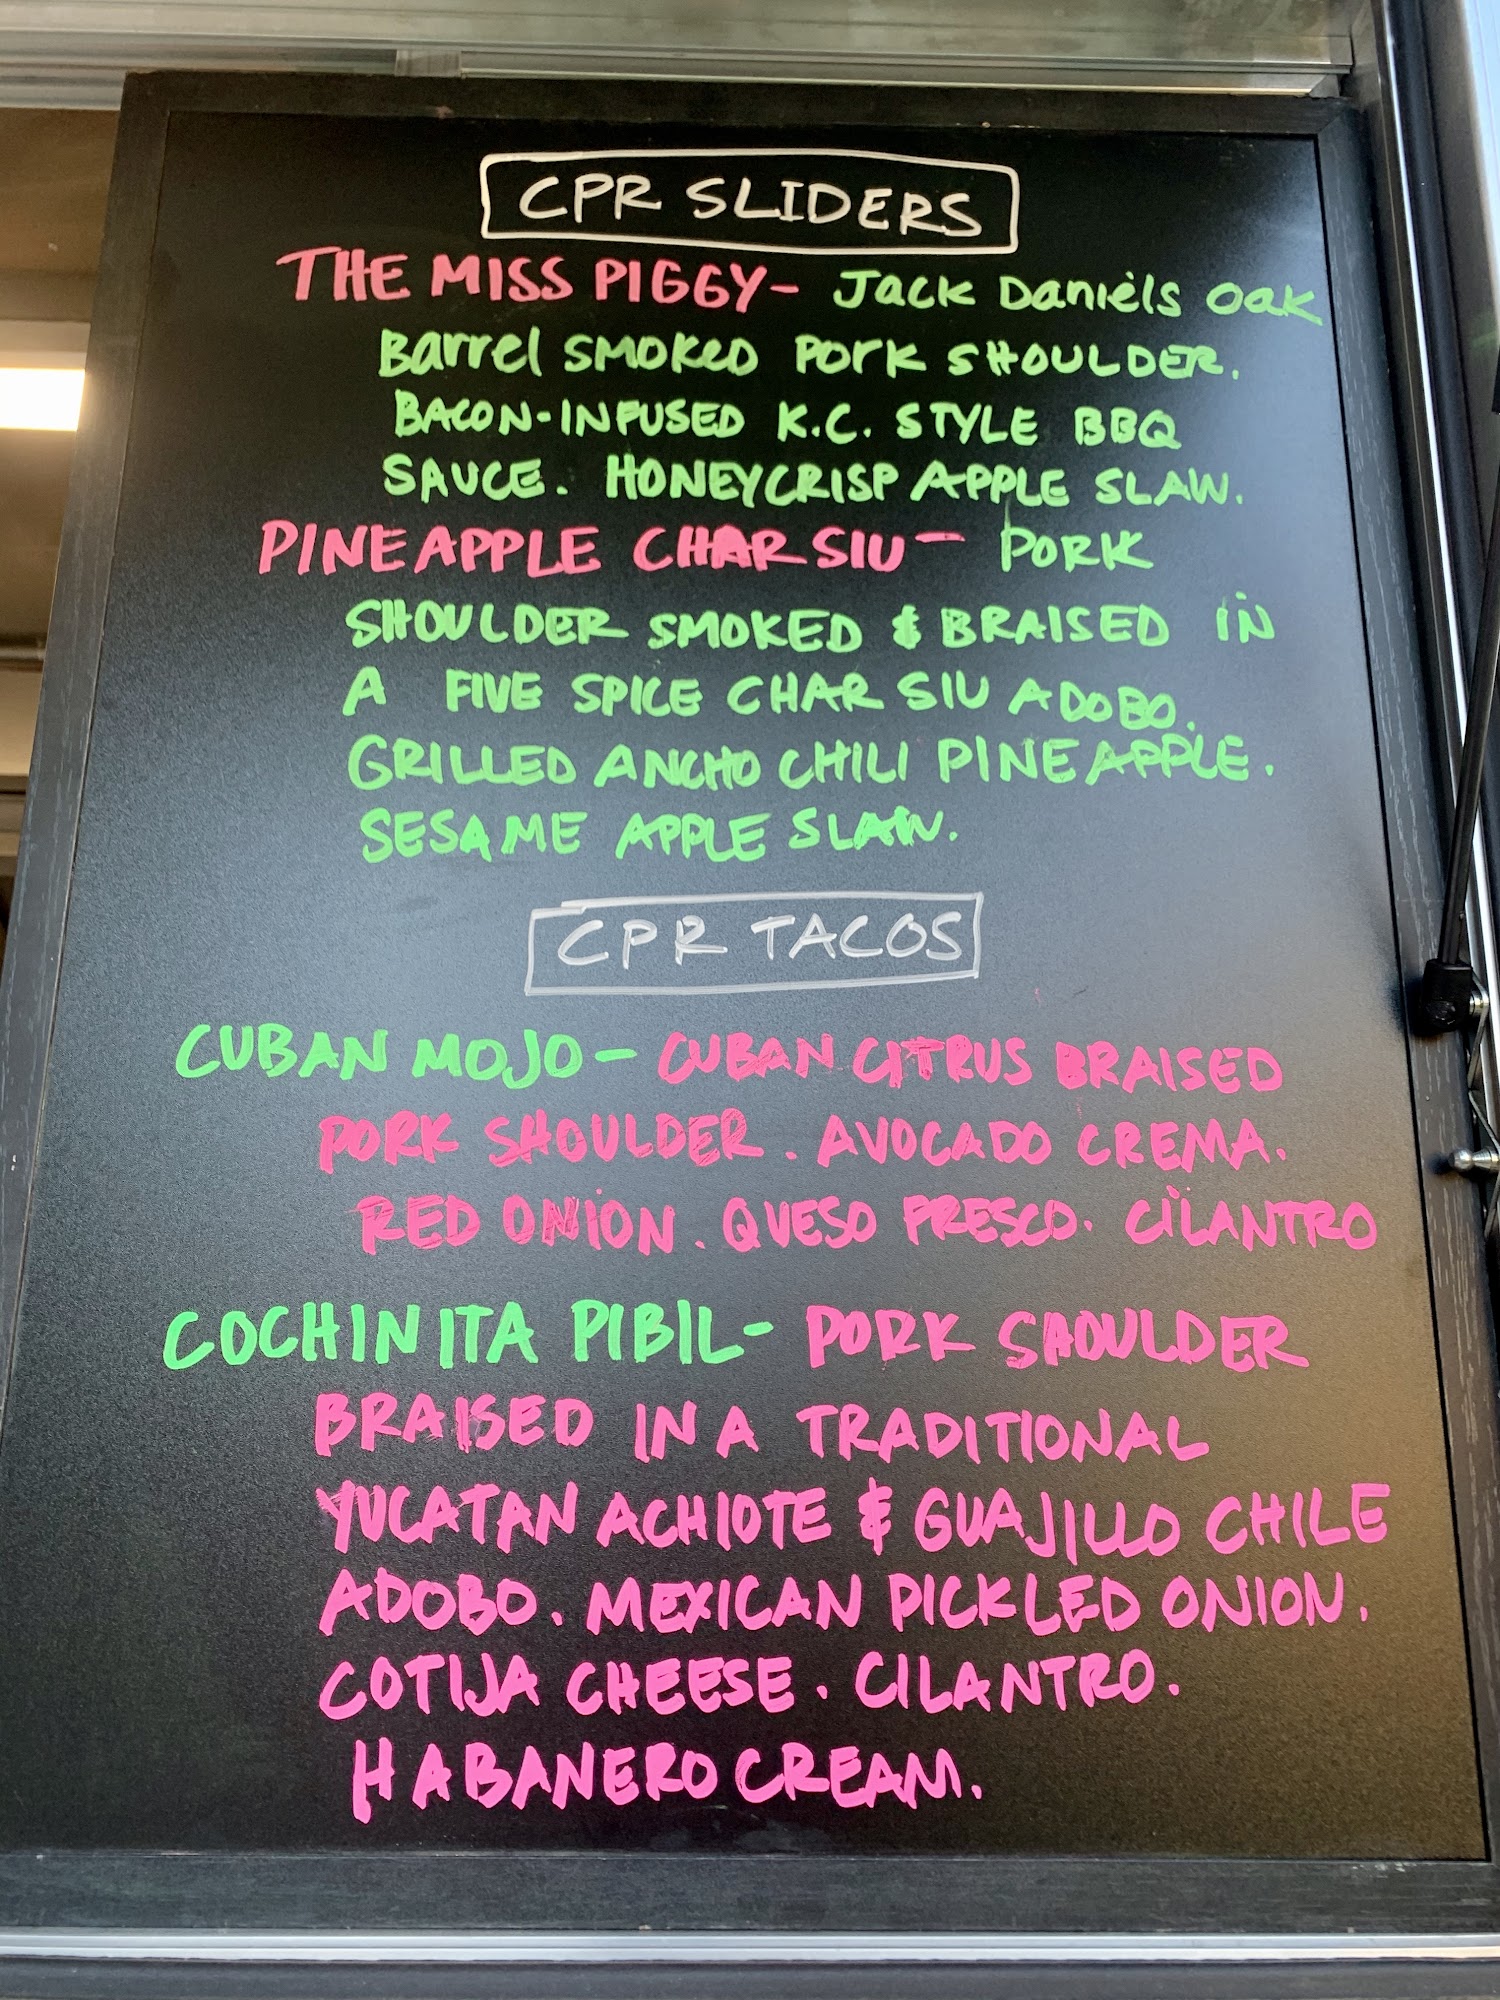 CPR SLIDERS
THE MISS PIGGY - Jack Daniels Oak
Barrel SMOKED PORK SHOULDER.
BACON-INFUSED K.C. STYLE BBQ
SAUCE. HONEYCRISP APPLE SLAW.
PINEAPPLE CHAR SIU - PORK
SHOULDER SMOKED & BRAISED IN
A FIVE SPICE CHAR SIU ADOBO.
GRILLED ANCHO CHILI PINEAPPLE.
SESAME APPLE SLAW.
CPR TACOS
CUBAN MOJO - CUBAN CITRUS BRAISED
PORK SHOULDER. AVOCADO CREMA.
RED ONION. QUESO FRESCO. CILANTRO
COCHINITA PIBIL - PORK SHOULDER
BRAISED IN A TRADITIONAL
YUCATAN ACHIOTE & GUAJILLO CHILE
ADOBO. MEXICAN PICKLED ONION.
COTIJA CHEESE. CILANTRO.
HABANERO CREAM.